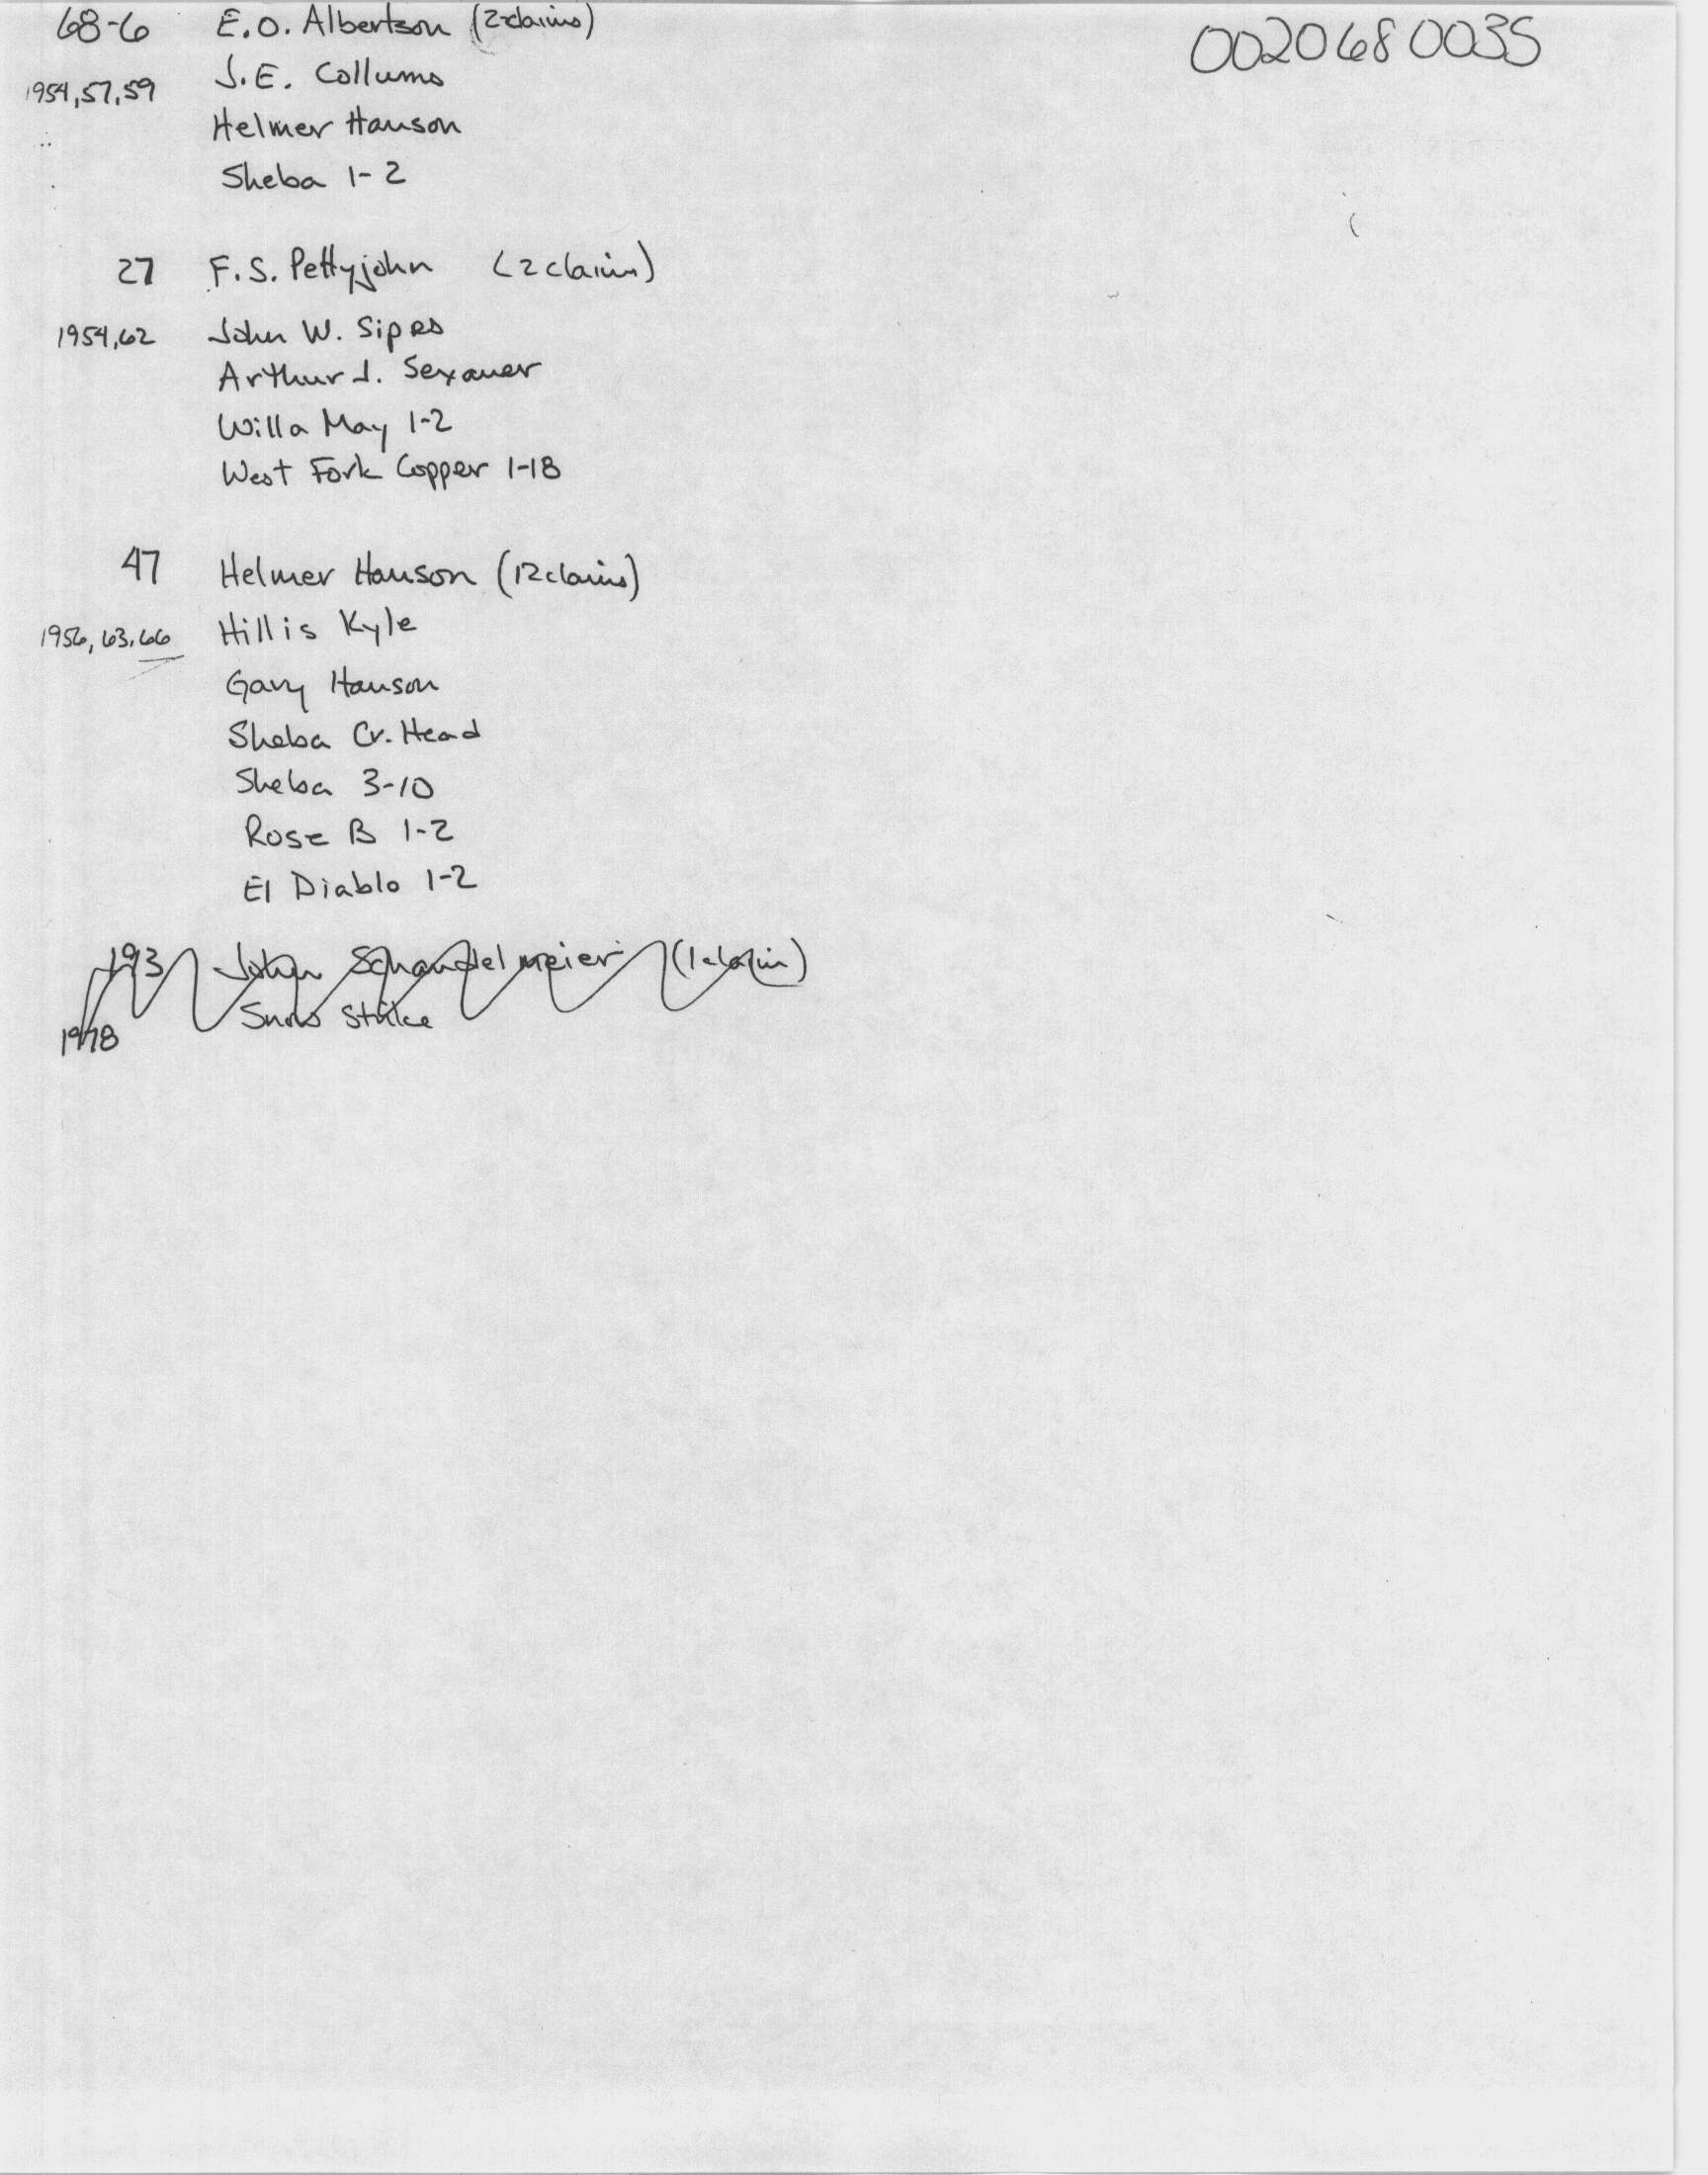 0020680035
68-6 E.O. Albertson (2 claims)
1954, 57, 59 J.E. Collums
Helmer Hanson
Sheba 1-2
27 F.S. Pettyjohn (2 claims)
1954, 62 John W. Sipes
Arthur J. Sexauer
Willa May 1-2
West Fork Copper 1-18
47 Helmer Hanson (12 claims)
1956, 63, 66 Hillis Kyle
Gary Hanson
Sheba Cr. Head
Sheba 3-10
Rose B 1-2
El Diablo 1-2
193 John Schandelmeier (1 claim)
Snow Strike
1978